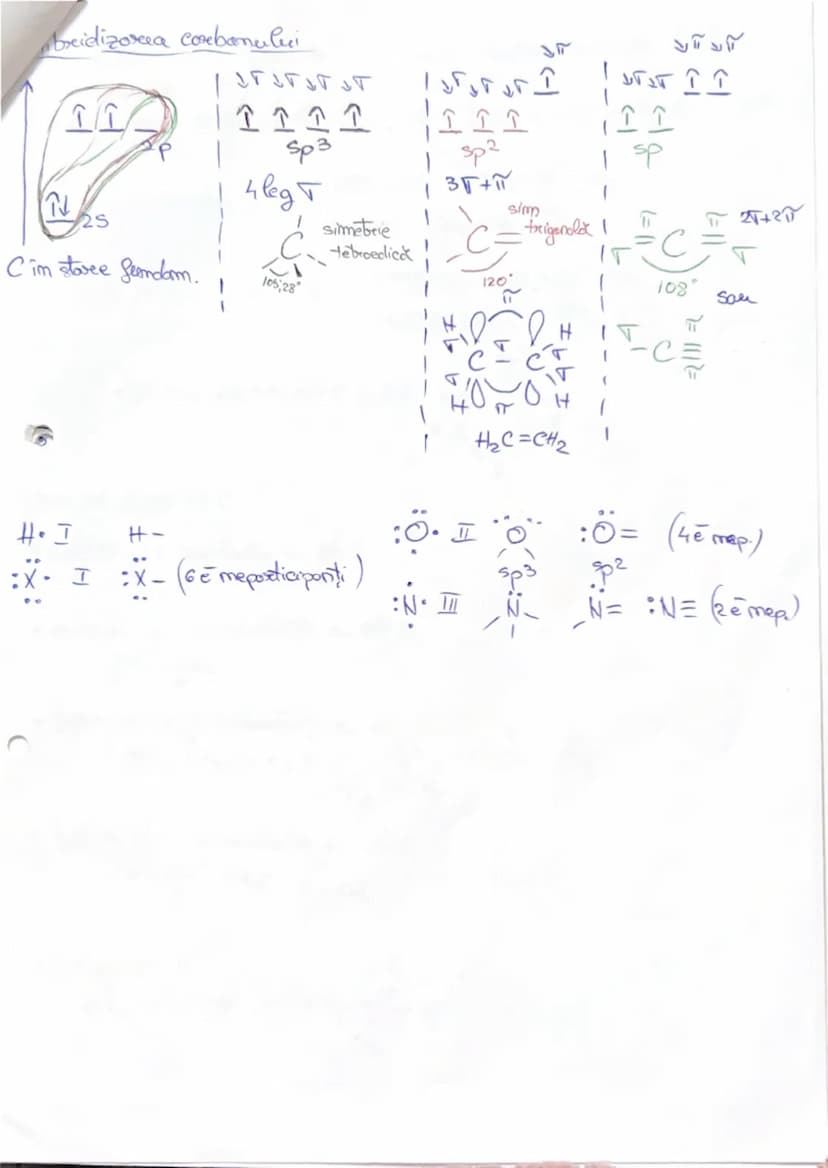 bridizarea carbonului
↿ ↿ _ 2p
⥮ 2s
C în stare fundam.
↓σ ↓σ ↓σ ↓σ
↿ ↿ ↿ ↿
sp³
4 leg σ
C
simetrie
tetraedică
105,28°
↓π
↓σ ↓σ ↓σ ↿
↿ ↿ ↿
sp²
3σ+π
sim
trigonală
C=
120°
π
H H
σ σ
C σ C
σ σ
H π H
H₂C=CH₂
↓π ↓π
↓σ ↓σ ↿ ↿
↿ ↿
sp
π π 2σ+2π
σ =C= σ
108°
sau
σ π
-C≡
π
H· I H-
:Ẍ· I :Ẍ- (6ē neparticipanți)
:Ö· II Ö :Ö= (4ē nep.)
sp³ sp²
:N· III N̈ N̈= :N≡ (2ē nep.)